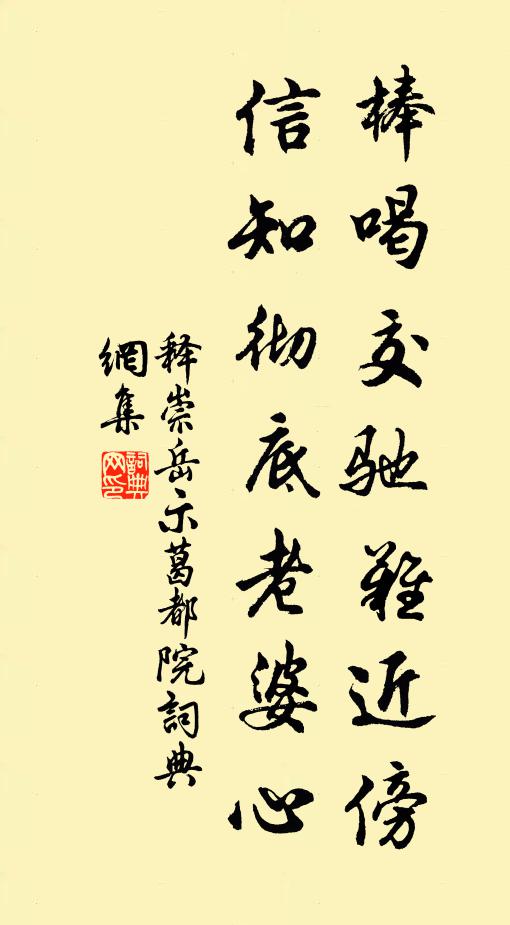 棒喝交驰難近傍
信知彻底老婆心
释崇岳示葛都院詞典
網集
詞典网印